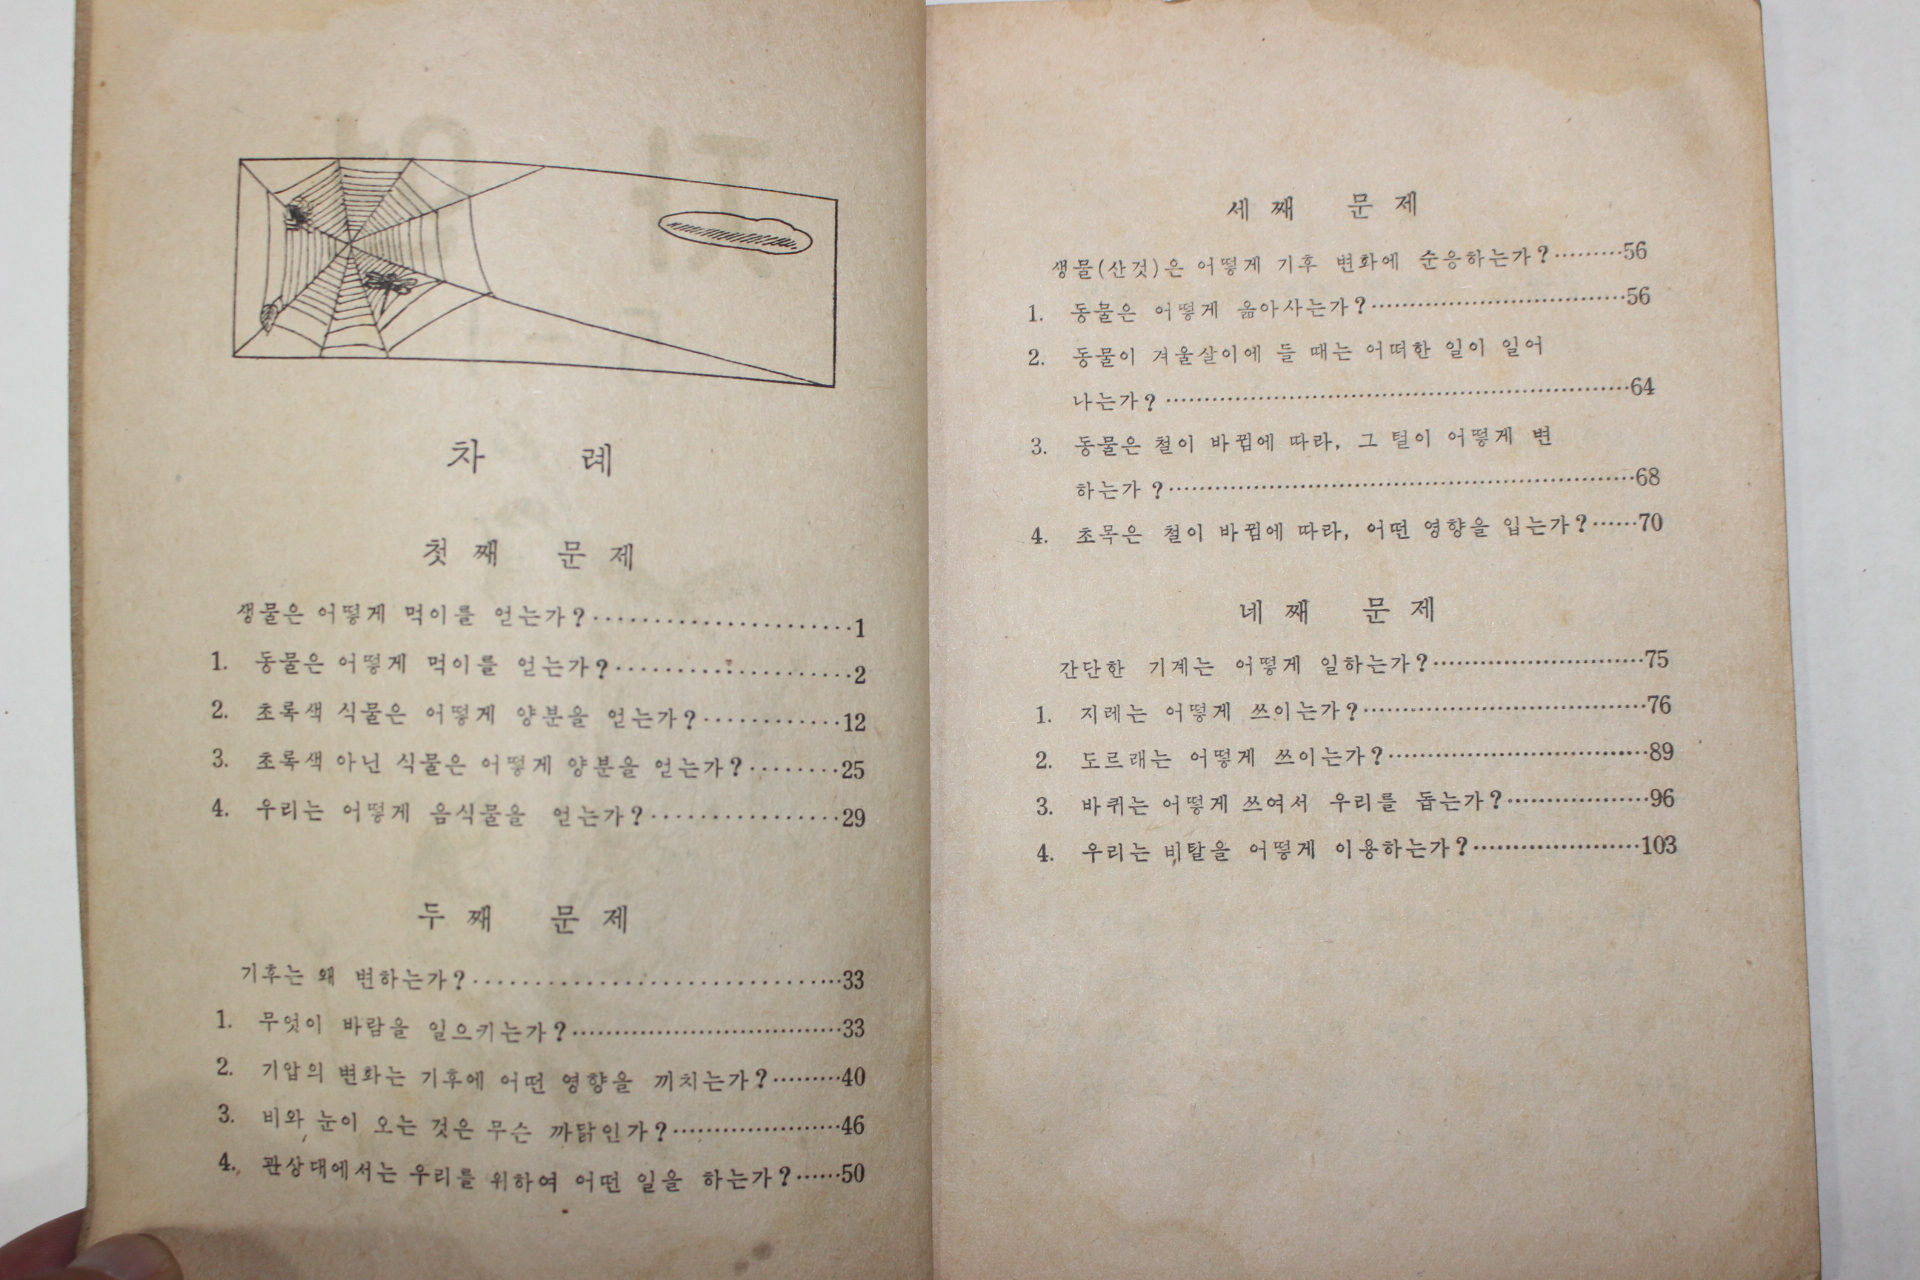 차 례
첫째 문제
생물은 어떻게 먹이를 얻는가?……………………1
1. 동물은 어떻게 먹이를 얻는가?…………………2
2. 초록색 식물은 어떻게 양분을 얻는가?…………12
3. 초록색 아닌 식물은 어떻게 양분을 얻는가?………25
4. 우리는 어떻게 음식물을 얻는가?………………29
두째 문제
기후는 왜 변하는가?……………………………33
1. 무엇이 바람을 일으키는가?……………………33
2. 기압의 변화는 기후에 어떤 영향을 끼치는가?………40
3. 비와 눈이 오는 것은 무슨 까닭인가?………………46
4. 관상대에서는 우리를 위하여 어떤 일을 하는가?……50
세째 문제
생물(산것)은 어떻게 기후 변화에 순응하는가?………56
1. 동물은 어떻게 옮아사는가?……………………56
2. 동물이 겨울살이에 들 때는 어떠한 일이 일어
나는가?……………………………………………64
3. 동물은 철이 바뀜에 따라, 그 털이 어떻게 변
하는가?……………………………………………68
4. 초목은 철이 바뀜에 따라, 어떤 영향을 입는가?……70
네째 문제
간단한 기계는 어떻게 일하는가?……………………75
1. 지레는 어떻게 쓰이는가?…………………………76
2. 도르래는 어떻게 쓰이는가?………………………89
3. 바퀴는 어떻게 쓰여서 우리를 돕는가?……………96
4. 우리는 비탈을 어떻게 이용하는가?………………103